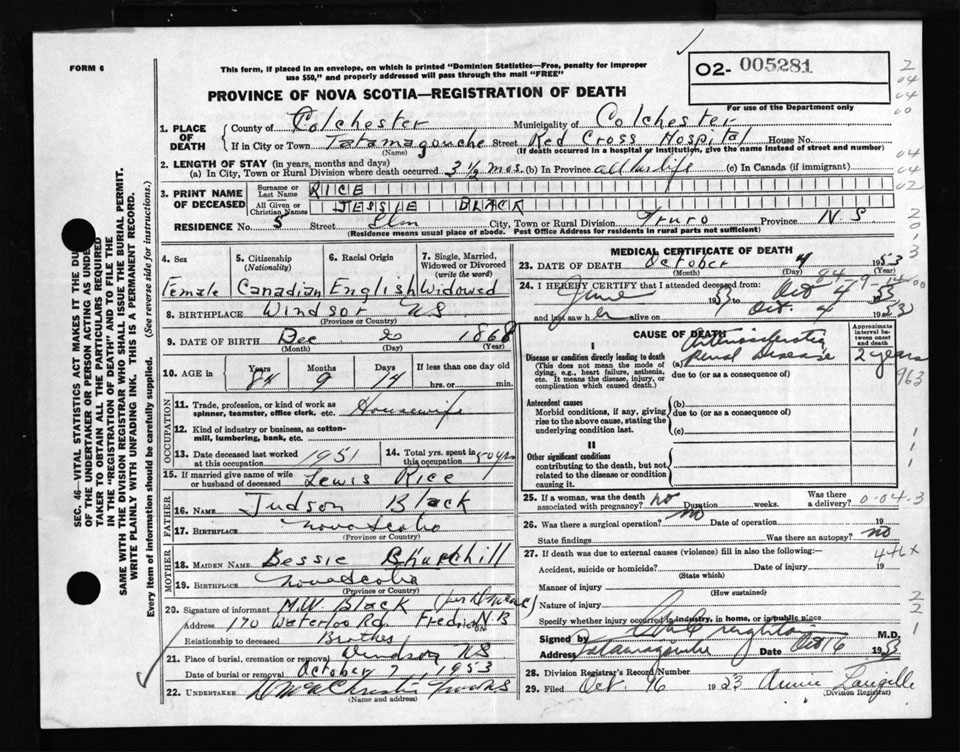 FORM 6
This form, if placed in an envelope, on which is printed "Dominion Statistics—Free, penalty for improper
use $50," and properly addressed will pass through the mail "FREE"
O2- 005281
For use of the Department only
PROVINCE OF NOVA SCOTIA—REGISTRATION OF DEATH
1. PLACE OF DEATH
County of Colchester Municipality of Colchester
If in City or Town Tatamagouche Street Red Cross Hospital House No.
(Name) (If death occurred in a hospital or institution, give the name instead of street and number)
2. LENGTH OF STAY (in years, months and days)
(a) In City, Town or Rural Division where death occurred 3 1/2 mos. (b) In Province all her life (c) In Canada (if immigrant)
3. PRINT NAME OF DECEASED
Surname or Last Name RICE
All Given or Christian Names JESSIE BLACK
RESIDENCE No. 5 Street Elm City, Town or Rural Division Truro Province N.S.
(Residence means usual place of abode. Post Office Address for residents in rural parts not sufficient)
SEC. 46—VITAL STATISTICS ACT MAKES IT THE DU
OF THE UNDERTAKER OR PERSON ACTING AS UNDE
TAKER TO OBTAIN ALL THE PARTICULARS REQUIRED
IN THE "REGISTRATION OF DEATH" AND TO FILE THE
SAME WITH THE DIVISION REGISTRAR WHO SHALL ISSUE THE BURIAL PERMIT.
WRITE PLAINLY WITH UNFADING INK. THIS IS A PERMANENT RECORD.
Every item of information should be carefully supplied. (See reverse side for instructions.)
4. Sex
Female
5. Citizenship
(Nationality)
Canadian
6. Racial Origin
English
7. Single, Married,
Widowed or Divorced
(write the word)
Widowed
8. BIRTHPLACE Windsor NS
(Province or Country)
9. DATE OF BIRTH Dec 2 1868
(Month) (Day) (Year)
10. AGE in
Years Months Days If less than one day
84 9 14 hrs. or min.
OCCUPATION
11. Trade, profession, or kind of work as
spinner, teamster, office clerk, etc. Housewife
12. Kind of industry or business, as cotton-
mill, lumbering, bank, etc.
13. Date deceased last worked
at this occupation 1951
14. Total yrs. spent in
this occupation 50 yrs
15. If married give name of wife
or husband of deceased Lewis Rice
FATHER
16. NAME Judson Black
17. BIRTHPLACE Nova Scotia
(Province or Country)
MOTHER
18. MAIDEN NAME Bessie Churchill
19. BIRTHPLACE Nova Scotia
(Province or Country)
20. Signature of informant M.W. Black
Address 170 Waterloo Rd. Fredricton N.B
Relationship to deceased Brother
21. Place of burial, cremation or removal Windsor NS
Date of burial or removal October 7, 1953
22. UNDERTAKER
(Name and address)
MEDICAL CERTIFICATE OF DEATH
23. DATE OF DEATH October 4 1953
(Month) (Day) (Year)
24. I HEREBY CERTIFY that I attended deceased from:
June 1953 to Oct 4 1953
and last saw her alive on Oct. 4 1953
CAUSE OF DEATH
Approximate
interval
between onset
and death
I
Disease or condition directly leading to death
(This does not mean the mode
of dying, e.g., heart failure, asthenia,
etc. It means the disease, injury, or
complication which caused death.)
(a) Arteriosclerotic
Renal Disease 2 years
due to (or as a consequence of)
963
Antecedent causes
Morbid conditions, if any, giving
rise to the above cause, stating the
underlying condition last.
(b)
due to (or as a consequence of)
(c)
II
Other significant conditions
contributing to the death, but not
related to the disease or condition
causing it.
25. If a woman, was the death
associated with pregnancy? no Duration weeks. Was there
a delivery?
26. Was there a surgical operation? no Date of operation 19
State findings Was there an autopsy? no
27. If death was due to external causes (violence) fill in also the following:—
Accident, suicide or homicide? Date of injury 19
(State which)
446x
Manner of injury
(How sustained)
Nature of injury
Specify whether injury occurred in industry, in home, or in public place
Signed by M.D.
Address Tatamagouche Date Oct 16 1953
28. Division Registrar's Record Number
29. Filed Oct. 16 1953 Annie Langille
(Division Registrar)